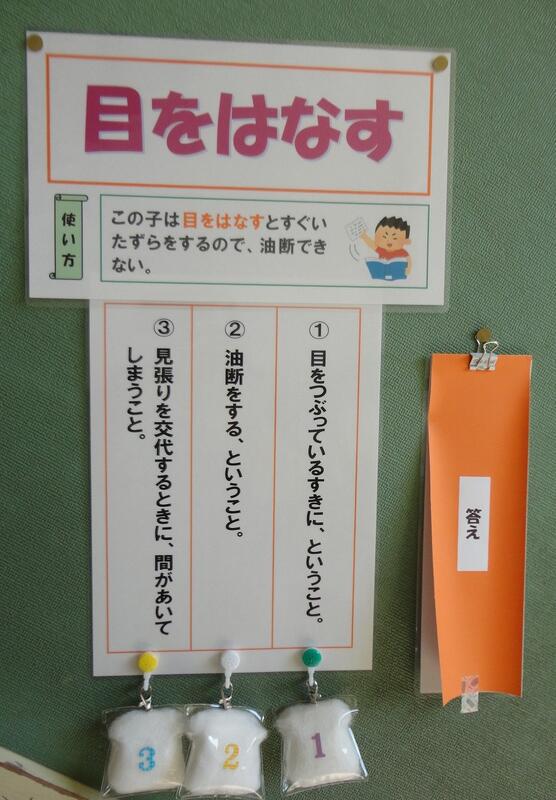 目をはなす
使い方
この子は目をはなすとすぐい
たずらをするので、油断でき
ない。
① 目をつぶっているすきに、ということ。
② 油断をする、ということ。
③ 見張りを交代するときに、間があいて
しまうこと。
答え
3
2
1